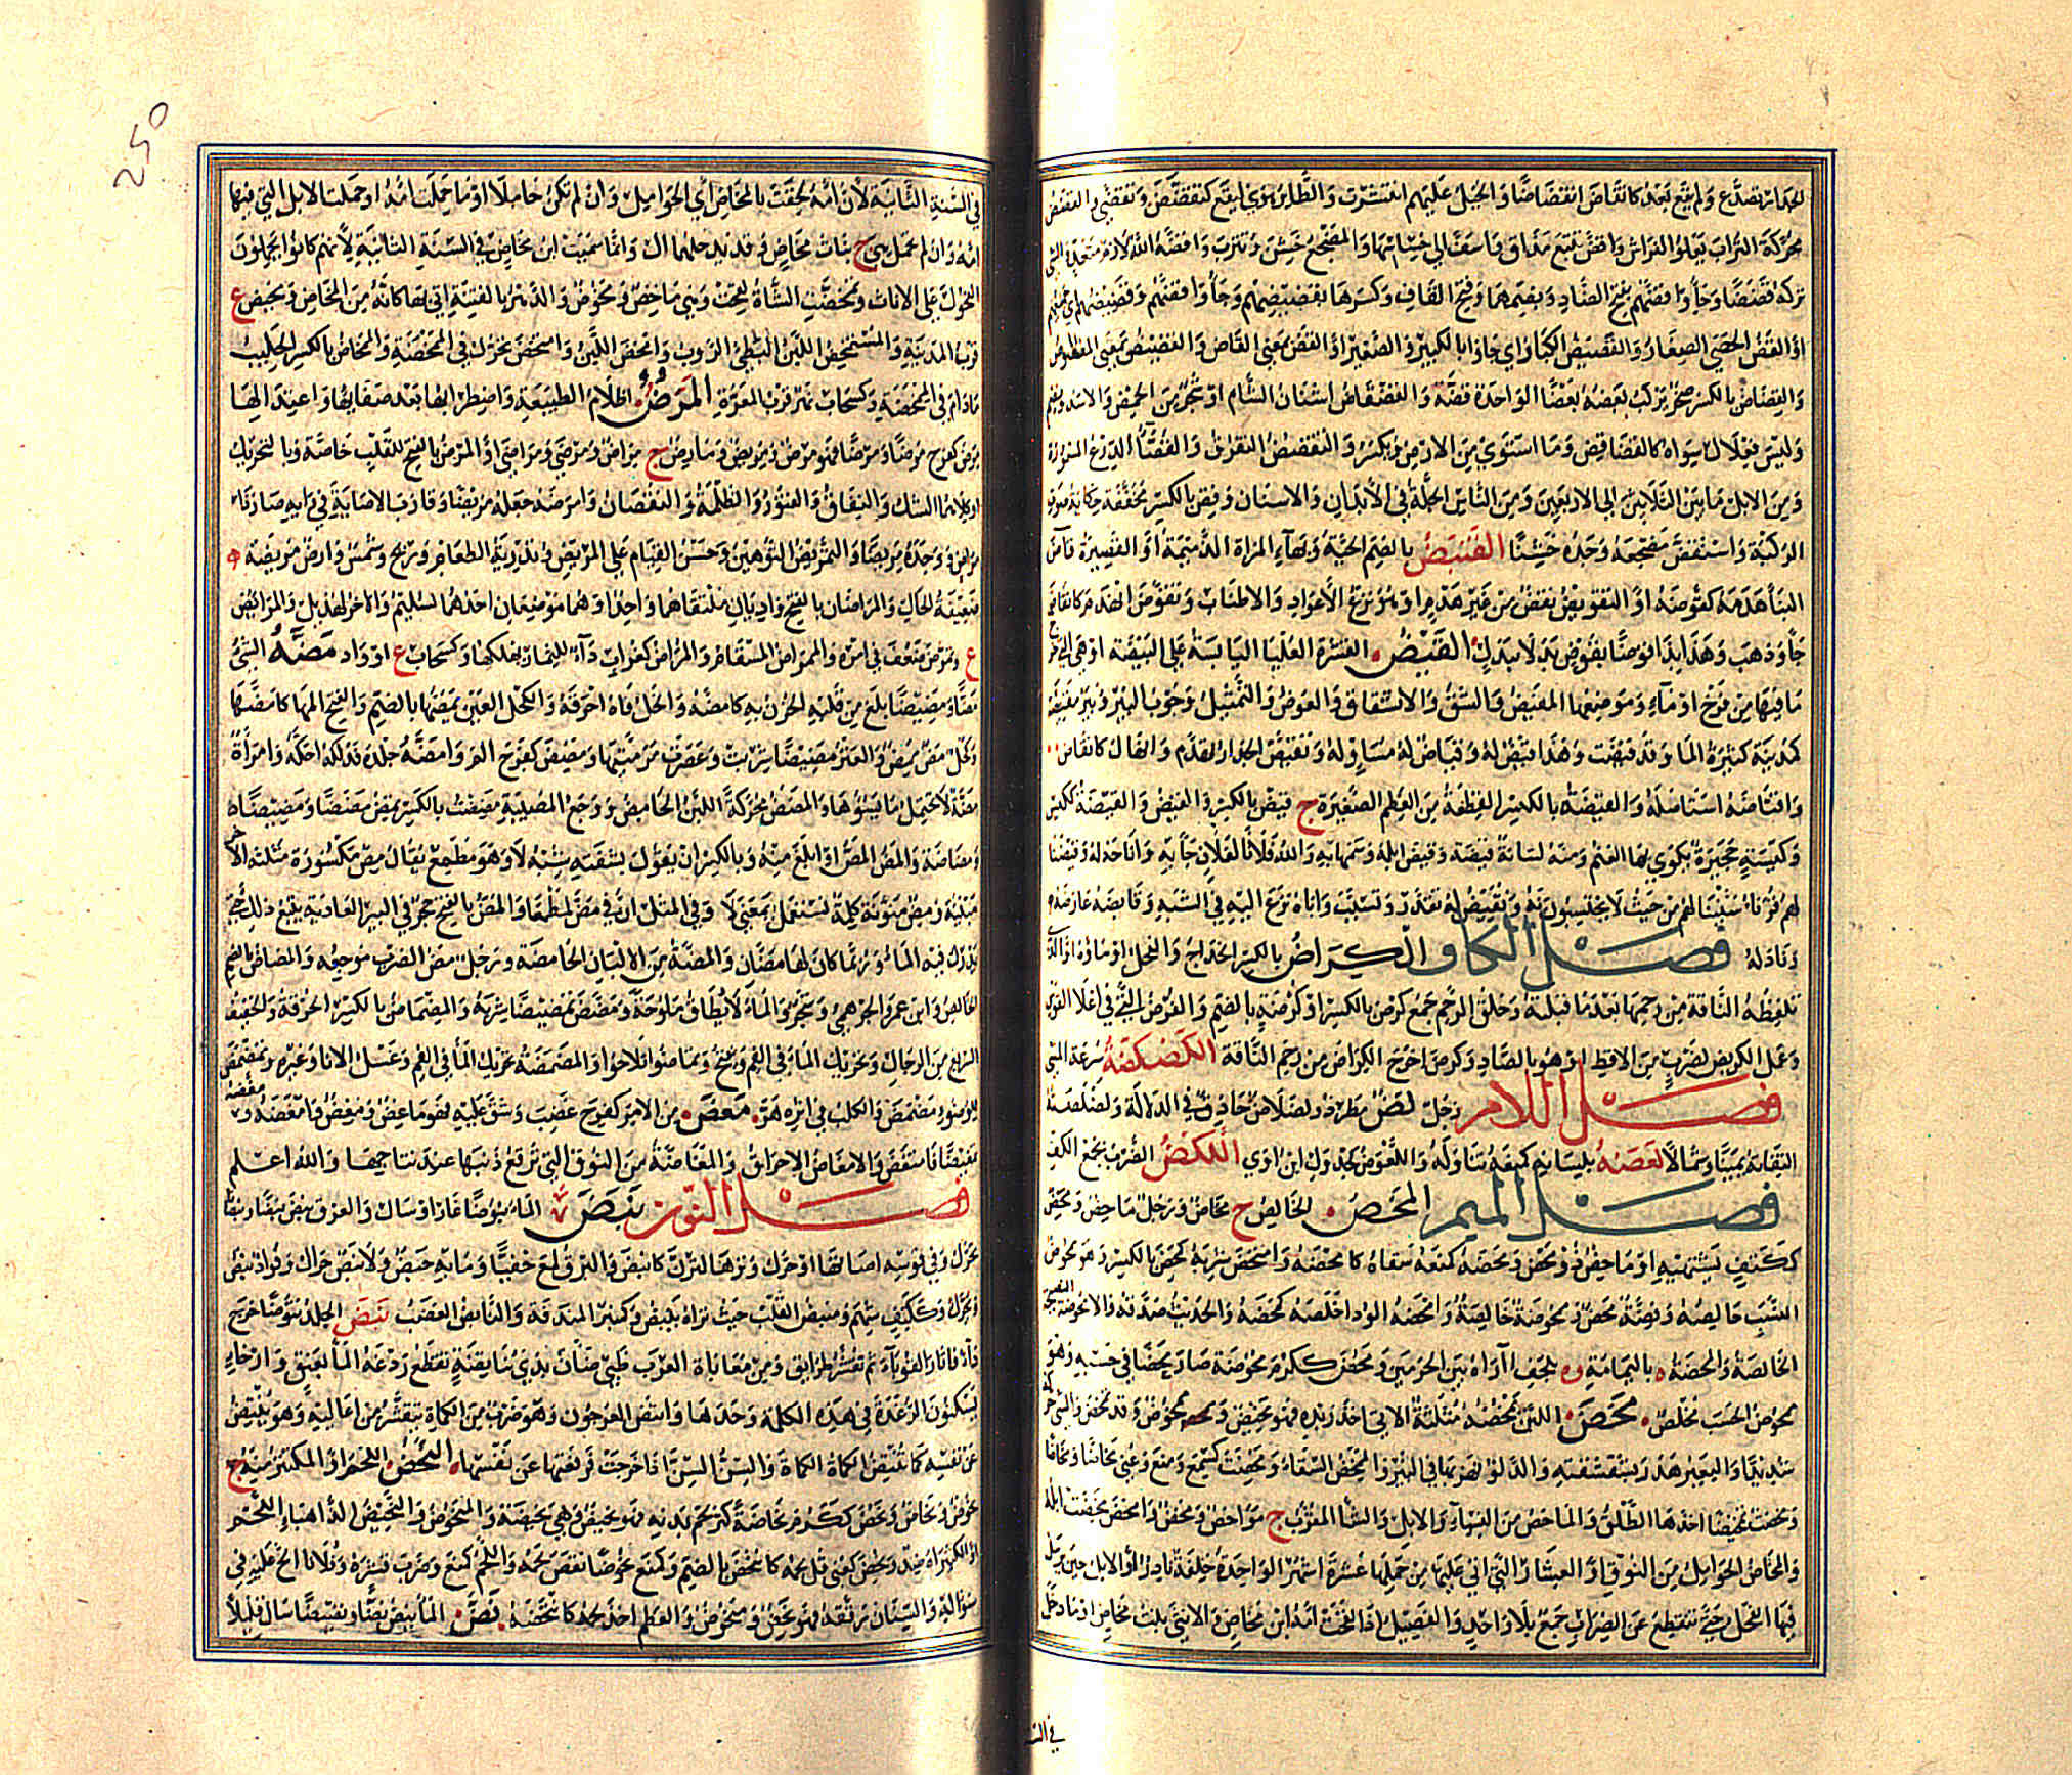 الجدار تصدع ولم يقع بعد كانقاض انقضاضا والخيل عليهم انتشرت والطائر هوى ليقع كتقضض وتقضى والقضض
محركة التراب يعلو الفراش واقض تتبع مداق واسف الى خساسها والمضجع خشن وتترب واقضه الله لازم متعد والشئ
تركه قضضا وجاوا قضهم بفتح الضاد وبضمها وفتح القاف وكسرها بقضيضهم وجاوا قضهم وقضيضهم اى جميعهم
او القض الحصى الصغار والقضيض الكبار اى جاوا بالكبير والصغير او القض بمعنى القاض والقضيض بمعنى المقضوض
والقضاض بالكسر صخر يركب بعضه بعضا الواحدة قضة والقضقاض اشنان الشام او شجر من الحمض والاسد ويضم
وليس فعلال سواه كالقضاقض وما استوى من الارض ويكسر والتقضقض التفرق والقضاء الدرع المسمورة
ومن الابل ما بين الثلاثين الى الاربعين ومن الناس الجلة فى الابدان والاسنان وقض بالكسر مخففة حكاية صوت
الركبة واستقض مضجعه وجده خشنا القنبض بالضم الحية وبهاء المراة الدميمة او القصيرة قاض
البناء هدمه كقوضه او التقويض نقض من غير هدم او هو نزع الاعواد والاطناب وتقوض انهدم كانقاض
جاء وذهب وهذا بذا قوضا بقوض بدلا ببدل القيض القشرة العليا اليابسة على البيضة او هى التى خرج
ما فيها من فرخ او ماء وموضعهما المقيض والشق والانشقاق والعوض والتمثيل وجوب البئر وبئر مقيضة
كمدينة كثيرة الماء وقد قيضت وهذا قيض له وقياض له مساو له وتقيض الجدار تهدم وانهال كانقاض
واقتاضه استاصله والقيضة بالكسر القطعة من العظم الصغيرة ج قيض بالكسر والقيض والقيضة ككيس
وكيسة حجيرة يكوى بها الغنم ومنه لسانه قيضة وقيض ابله وسمها به والله فلانا لفلان جاء به واتاحه له وقيضنا
لهم قرناء سببنا لهم من حيث لا يحتسبون وتقيض له تقدر وتسبب واباه نزع اليه فى الشبه وقايضه عارضه
وبادله فصل الكاف الكراض بالكسر الخداج والفحل او ماؤه او الذى
تلفظه الناقة من رحمها بعد ما قبلته وحلق الرحم جمع كرض بالكسر او كرضة بالضم والفرض التى فى اعلا القوس
وعمل الكريض لضرب من الاقط او هو بالصاد وكرض اخرج الكراض من رحم الناقة الكضكضة سرعة المشى
فصل اللام رجل لض مطرد ولضلاض حاذق فى الدلالة ولضلضته
التفاته يمينا وشمالا لعضه بلسانه كمنعه تناوله واللعوض كجدول ابن اوى اللكض الضرب بجمع الكف
فصل الميم المحض الخالص ج محاض ورجل ماحض ومحض
ككتف يشتهيه او ماحض ذو محض ومحضه كمنعه سقاه كامحضه وامتحض شربه كمحض بالكسر وهو ممحوض
النسب خالصه وفضة محض ومحوضة خالصة وامحضه الود اخلصه كمحضه والحديث صدقه والامحوضة النصيحة
الخالصة والمحضة ه باليمامة و ه بلحف آراه بين الحرمين ومحض ككرم محوضة صار محضا فى حسبه وهو
ممحوض الحسب مخلص محض اللبن يمخضه مثلثة الاتى اخذ زبده فهو مخيض وممخوض وقد تمخض والشئ حركه
شديدا والبعير هدر بشقشقته والدلو نهز بها فى البئر والمخض السقاء ومخضت كسمع ومنع وعنى مخاضا ومخاضا
ومخضت تمخيضا اخذها الطلق والماخض من النساء والابل والشاء المقرب ج مواخض ومخض وامخض مخضت ابله
والمخاض الحوامل من النوق او العشار التى اتى عليها من حملها عشرة اشهر الواحدة خلفة نادر او الابل حين يرسل
فيها الفحل حتى تنقطع عن الضراب جمع بلا واحد والفصيل اذا لقحت امه ابن مخاض والانثى بنت مخاض او ما دخل
فى الس
250
فى السنة الثانية لان امه لحقت بالمخاض اى الحوامل وان لم تكن حاملا او ما حملت امه او حملت الابل التى فيها
امه وان لم تحمل هى ج بنات مخاض وقد يدخلهما ال وانما سميت ابن مخاض فى السنة الثانية لانهم كانوا يحملون
الفحول على الاناث وتمخضت الشاة لقحت وهى ماخض ومخوض والدهر بالفتنة اتى بها كانه من المخاض ومخيض ع
قرب المدينة والمستمخض اللبن البطئ الروب وامخض اللبن وامتخض تحرك فى الممخضة والامخاض بالكسر الحليب
مادام فى الممخضة وكسحاب نهر قرب المعرة المرض اظلام الطبيعة واضطرابها بعد صفائها واعتدالها
مرض كفرح مرضا ومرضا فهو مرض ومريض ومارض ج مراض ومرضى ومراضى او المرض بالفتح للقلب خاصة وبالتحريك
او كلاهما الشك والنفاق والفتور والظلمة والنقصان وامرضه جعله مريضا وقارب الاصابة فى رايه وصار ذا
مرض ووجده مريضا والتمريض التوهين وحسن القيام على المريض وتذرية الطعام وريح وشمس وارض مريضة
ضعيفة الحال والمراضان بالفتح واديان ملتقاهما واحد او هما موضعان احدهما لسليم والاخر لهذيل والمرائض
ع وتمرض ضعف فى امره والممراض المسقام والمراض كغراب داء للثمار يهلكها وكسحاب ع او واد مضه الشئ
مضا ومضيضا بلغ من قلبه الحزن به كامضه والخل فاه احرقه والكحل العين يمضها بالضم والفتح المها كامضها
وكحل مض ممض والعنز مضيضا شربت وعصرت مرمتيها ومضض كفرح الم وامضه جلده فدلكه احكه وامراة
مضة لا تحتمل ما يسوءها والمضض محركة اللبن الحامض ووجع المصيبة مضضت بالكسر تمض مضضا ومضيضا
ومضاضة والمض المص او ابلغ منه وبالكسر ان يقول بشفته شبه لا وهو مطمع يقال مض مكسورة مثلثة الاخر
مبنية ومض منونة كلمة تستعمل بمعنى لا وفى المثل ان فى مض لمطمعا والمض بالفتح حجر فى البير العادية يتبع ذلك حتى
يدرك فيه الماء وربما كان لها مضان والمضة من الالبان الحامضة ورجل مض الضرب موجعه والمضاض بالضم
الخالص وابن عمرو الجرهمى وشجر والماء لا يطاق ملوحة ومضض تمضيضا شربه والمضماض بالكسر الحرقة والخفيف
السريع من الرجال وتحريك الماء فى الفم ويفتح وتماضوا تلاحوا والمضمضة تحريك الماء فى الفم وغسل الاناء وغيره وتمضمض
للوضوء مضمض والكلب فى اثره هر معض من الامر كفرح غضب وشق عليه فهو ماعض ومعض وامعضه ومعضه
تمعيضا فامتعض والامعاض الاحراق والمعاضة من النوق التى ترفع ذنبها عند نتاجها والله اعلم
فصل النون نبض الماء نبوضا غار او سال والعرق ينبض نبضا ونبضانا
تحرك وفى قوسه اصاتها او حرك وترها لترن كانبض والبرق لمع خفيا وما به حبض ولا نبض حراك وفواد نبض
ويحرك وككتف شهم ومنبض القلب حيث تراه ينبض وكمنبر المندفة والنابض الغضب نتض الجلد نتوضا خرج
داء فاثار القوباء ثم تقشر طرائق ومن معاياة العرب ظبى ضان بذى تناتضة تقطع ردغة الماء بعنق وارخاء
يسكنون الردغة فى هذه الكلمة وحدها وانتض العرجون وهو ضرب من الكماة يتقشر من اعاليه وهو ينتض
عن نفسه كما تنتض الكماة الكماة والسن السن اذا خرجت فرفعتها عن نفسها النحض اللحم او المكتنز منه ج
نحوض ونحاض ونحض ككرم نحاضة كثر لحم بدنه فهو نحيض وهى نحيضة والمنحوض والنحيض الذاهبا اللحم
او الكثيراه ضد ونحض كعنى قل لحمه كانتحض بالضم وكمنع نحوضا نقص لحمه واللحم كمنع وضرب قشره وفلانا الح عليه فى
سؤاله والسنان رققه فهو نحيض ومنحوض والعظم اخذ لحمه كانتحضه نض الماء ينض نضا ونضيضا سال قليلا